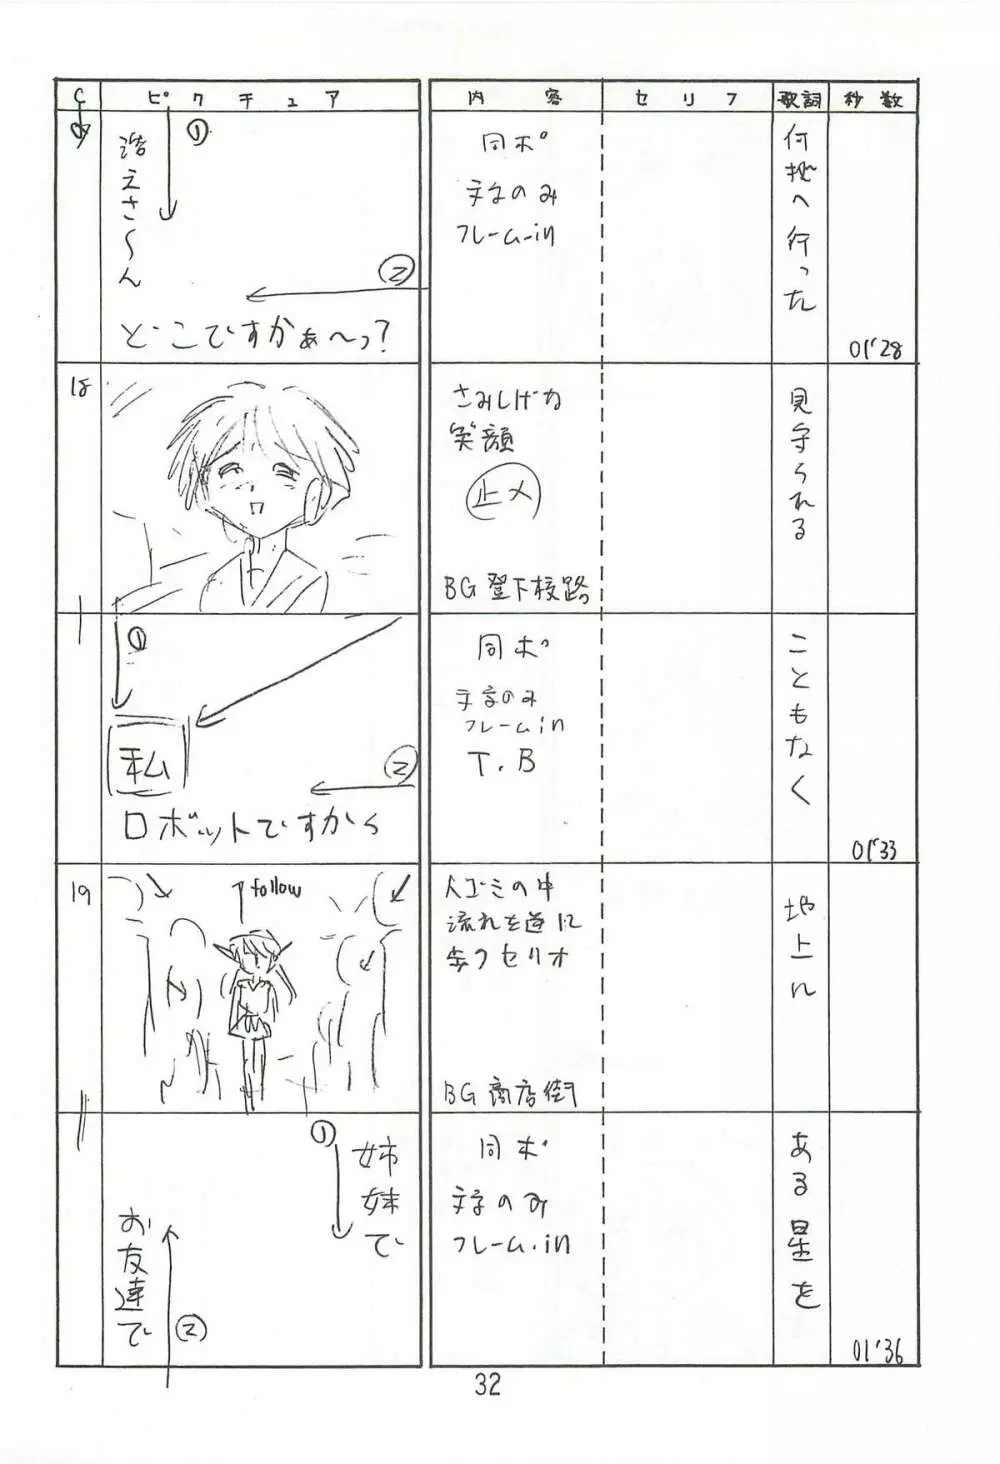 C ピクチュア 内容 セリフ 歌詞 秒数
①
浩之さ〜ん
②
どこですかぁ〜っ?
同ポ
文字のみ
フレーム-in
何処へ行った
01'28
18
さみしげな
笑顔
止メ
BG 登下校路
見守られる
①
私
②
ロボットですから
同ポ
文字のみ
フレームin
T.B
こともなく
01'33
19
follow
人ゴミの中
流れを逆に
セリオ
BG 商店街
地上に
①
姉妹で
お友達で
②
同ポ
文字のみ
フレーム.in
ある星を
01'36
32